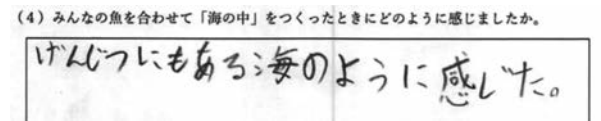 (4) みんなの魚を合わせて「海の中」をつくったときにどのように感じましたか。
げんじつにもある海のように感じた。